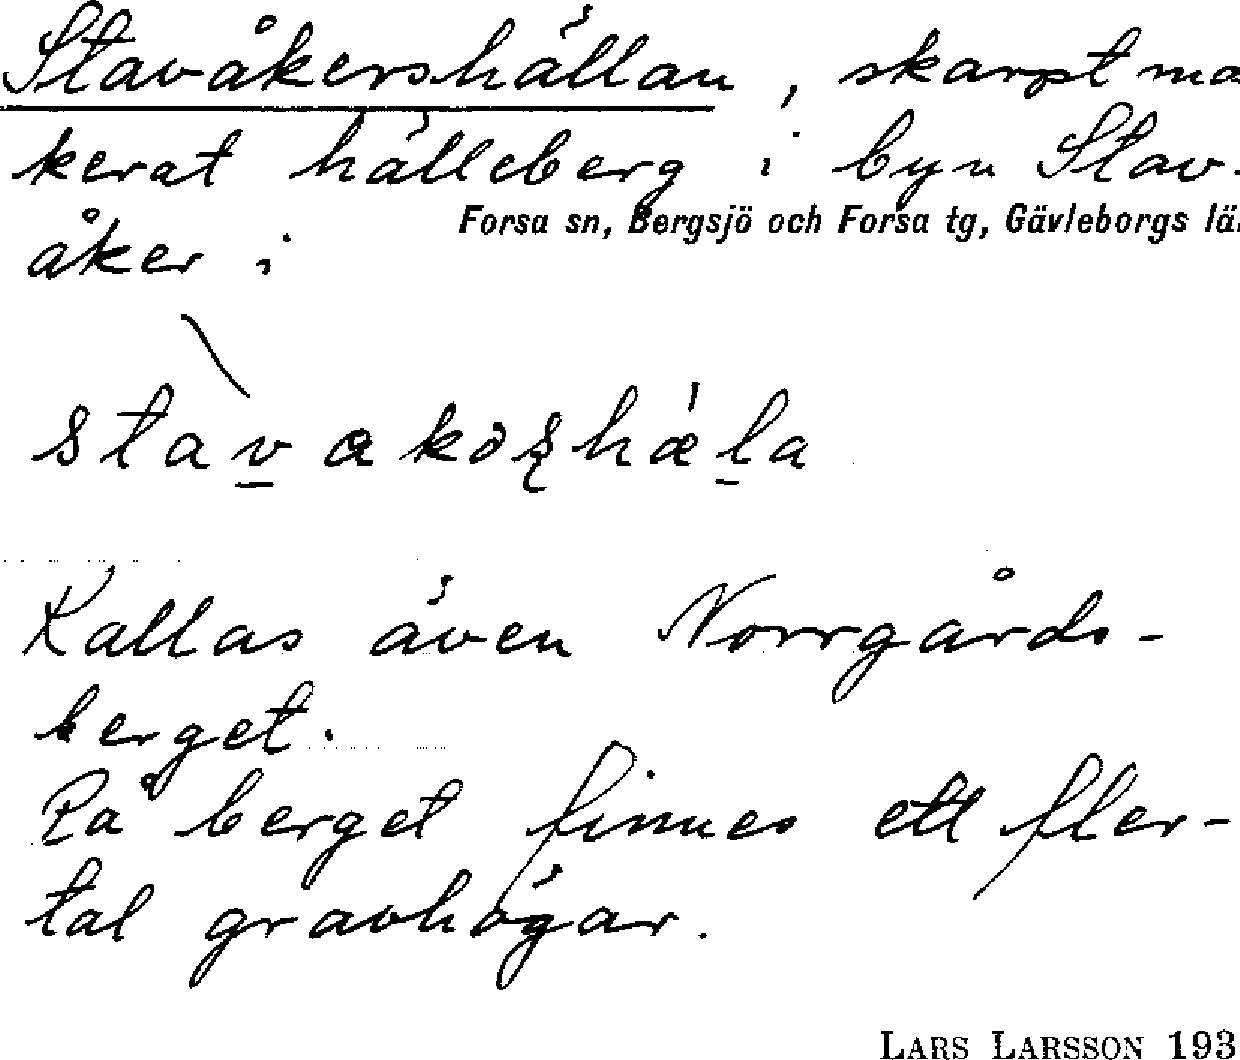 Stavåkershällan, skarpt ma
kerat hälleberg i byn Stav-
Forsa sn, Bergsjö och Forsa tg, Gävleborgs lä
åker i
stav̲akəʂhæ̀l̲a
Kallas även Norrgårds-
berget.
På berget finnes ett fler-
tal gravhögar.
LARS LARSSON 193